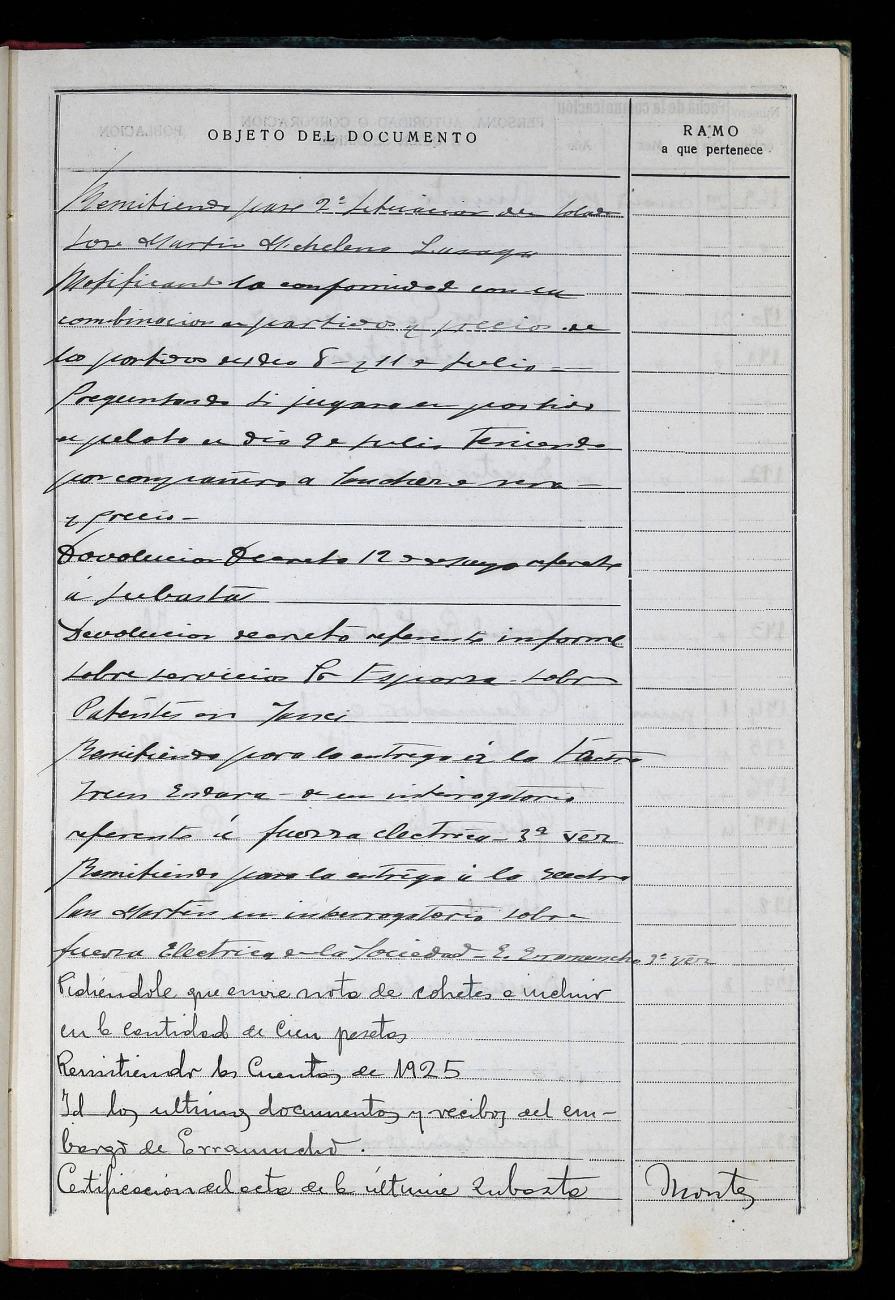 OBJETO DEL DOCUMENTO
RAMO
a que pertenece
Remitiendo pase 2ª situacion del soldado
Jose Martin Michelena Lasaga
Notificando la conformidad con su
combinacion en partidos y precios de
los partidos del dia 8 y 11 de Julio —
Preguntando si jugara en partido
de pelota el dia 9 de Julio Teniendo
por compañero a Sanchez de
y precio —
Devolucion Decreto 12 de Mayo referente
á subastas
Devolucion decreto referente informe
sobre servicios Sr Esparza sobre
Patentes en
Remitiendo para la entrega á la
Irun Endara — de un interrogatorio
referente á fuerza electrica — 3ª vez
Remitiendo para la entrega á la
San Martin un interrogatorio sobre
fuerza Electrica de la Sociedad — E. Erramuncho 3ª vez
Pidiéndole que envie nota de cohetes e incluir
en la cantidad de cien pesetas
Remitiendo las Cuentas de 1925
Id los ultimos documentos y recibos del em-
bargo de Erramucho.
Certificación del acta de la última subasta
Montes